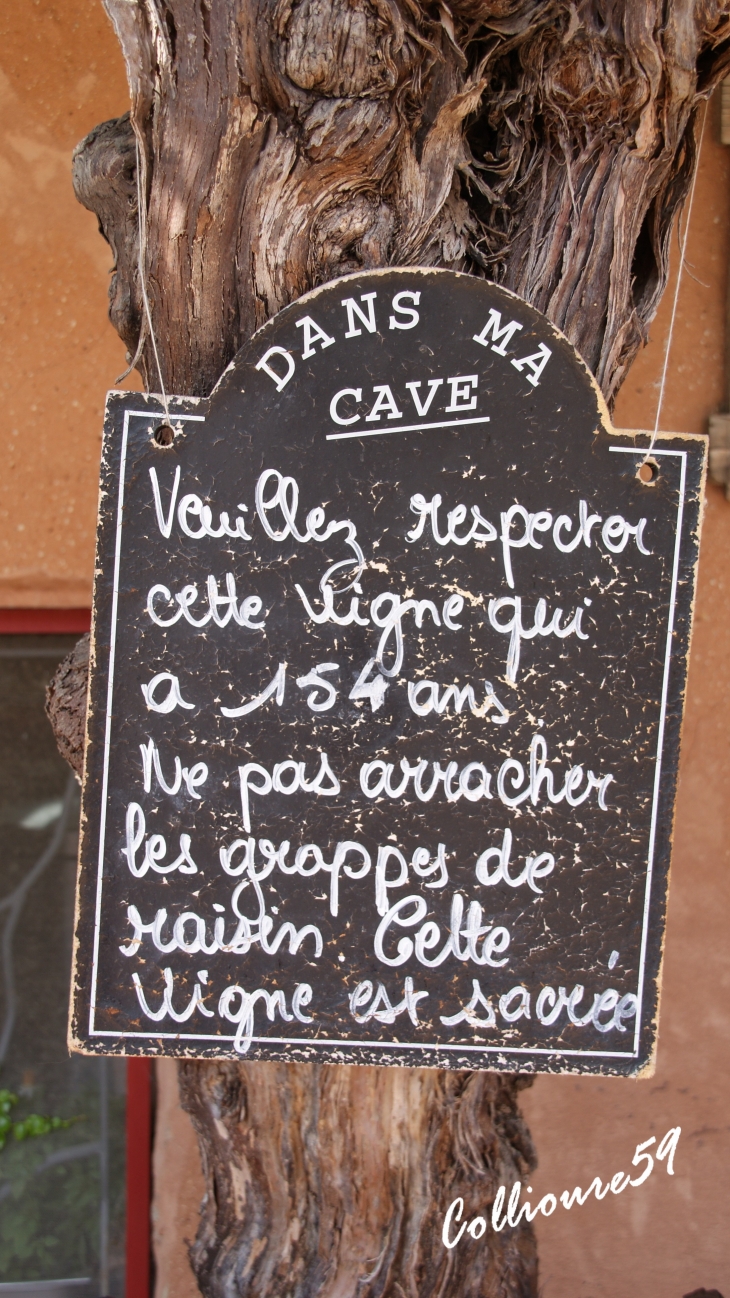 DANS MA
CAVE
Veuillez respecter
cette vigne qui
a 154 ans
Ne pas arracher
les grappes de
raisin Cette
vigne est sacrée
Collioure59